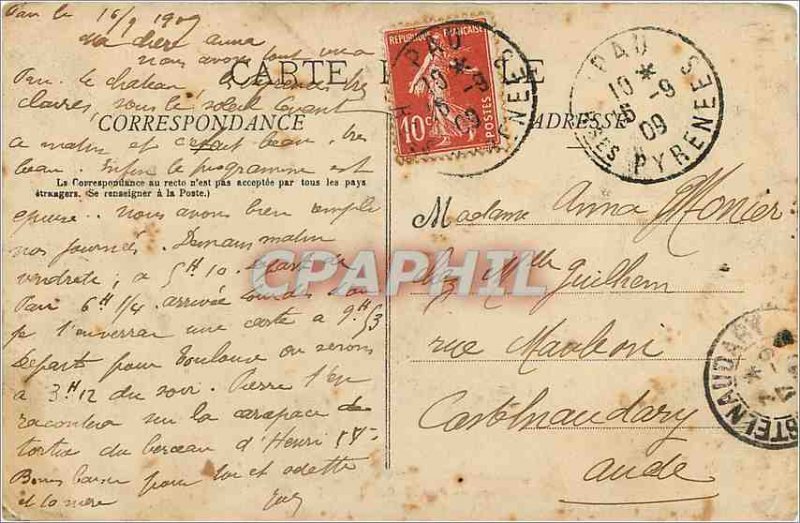 Pau le 16/9 1909
Ma chère Anna
nous avons tout vu a
Pau. le chateau, les Pyrenées tres
claires, sous le soleil levant
CARTE POSTALE
CORRESPONDANCE
ce matin et c'etait beau, tres
beau. Enfin le programme est
La Correspondance au recto n'est pas acceptée par tous les pays
étrangers. (Se renseigner à la Poste.)
epuisé.. Nous avons bien rempli
nos journées. Demain matin
vendredi, a 5H 10. départ de
Pau 6H 1/4. arrivée Lourdes d'ou
je t'enverrai une carte a 9H53
départ pour Toulouse ou serons
a 3H12 du soir. Pierre t'
racontera sur la carapace de
tortue du berceau d'Henri IV
Bons baisers pour toi et Odette
et ta mère
REPUBLIQUE FRANÇAISE
10c
POSTES
PAU
10 *
16 -9
09
PYRENEES
ADRESSE
PAU
10 *
16 -9
09
BSES PYRENEES
Madame Anna Monier
chez Mlle Guilhem
rue Mauléon
Castelnaudary
Aude
CASTELNAUDARY
CPAPHIL